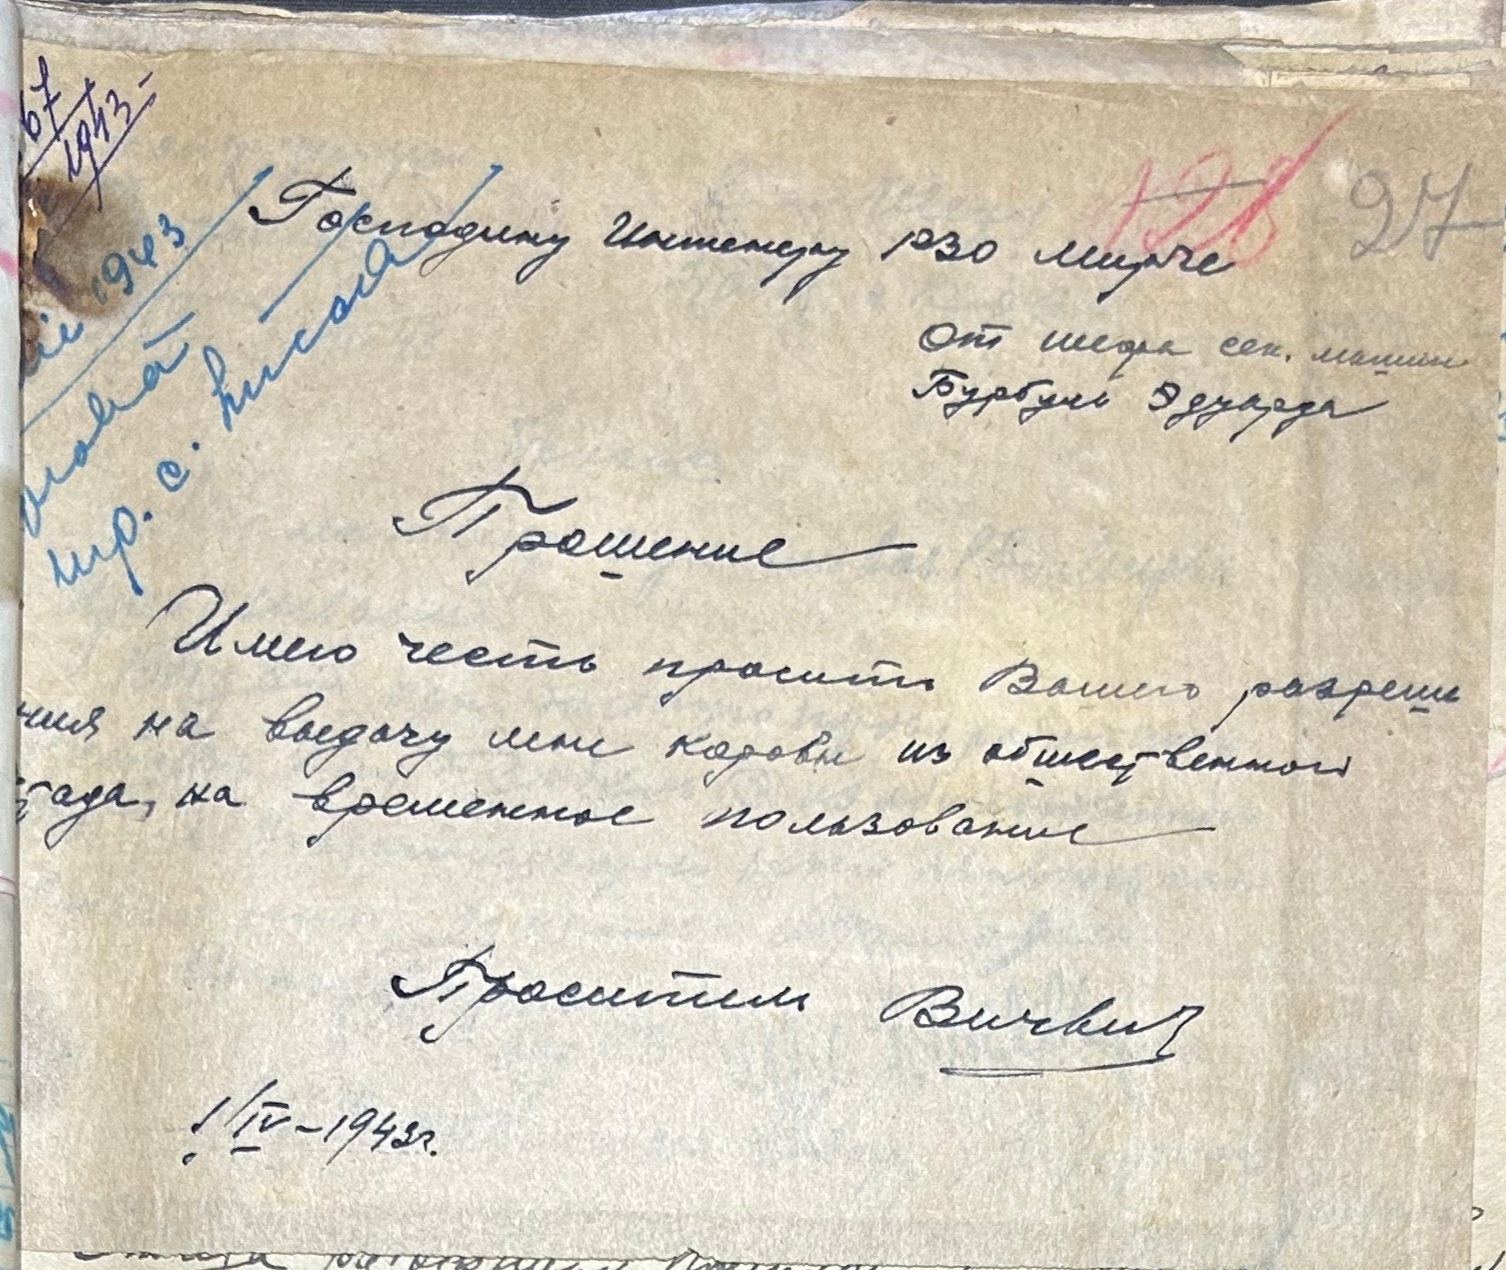 67
1943
1943
128
27
Господину Инженеру РЗО Мирче
От шефа сек. машин
Бурбуль Эдуарда
пр. с.
Прошение
Имею честь просить Вашего разреше
ния на выдачу мне коровы из общественного
стада, на временное пользование
Проситель
1/IV-1943г.